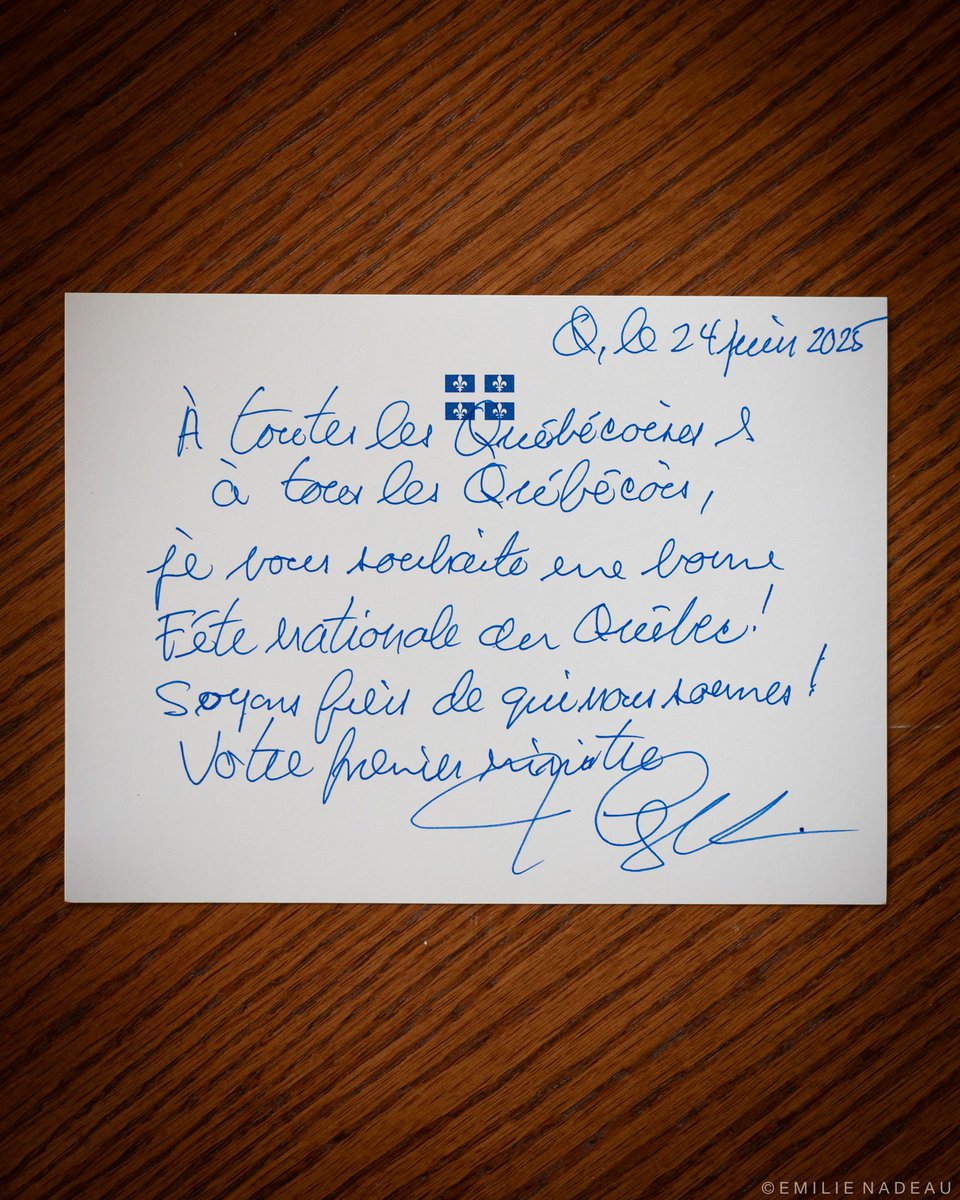 Q, le 24 juin 2025
À toutes les Québécoises &
à tous les Québécois,
je vous souhaite une bonne
Fête nationale du Québec!
Soyons fiers de qui nous sommes!
Votre premier ministre
©EMILIE NADEAU